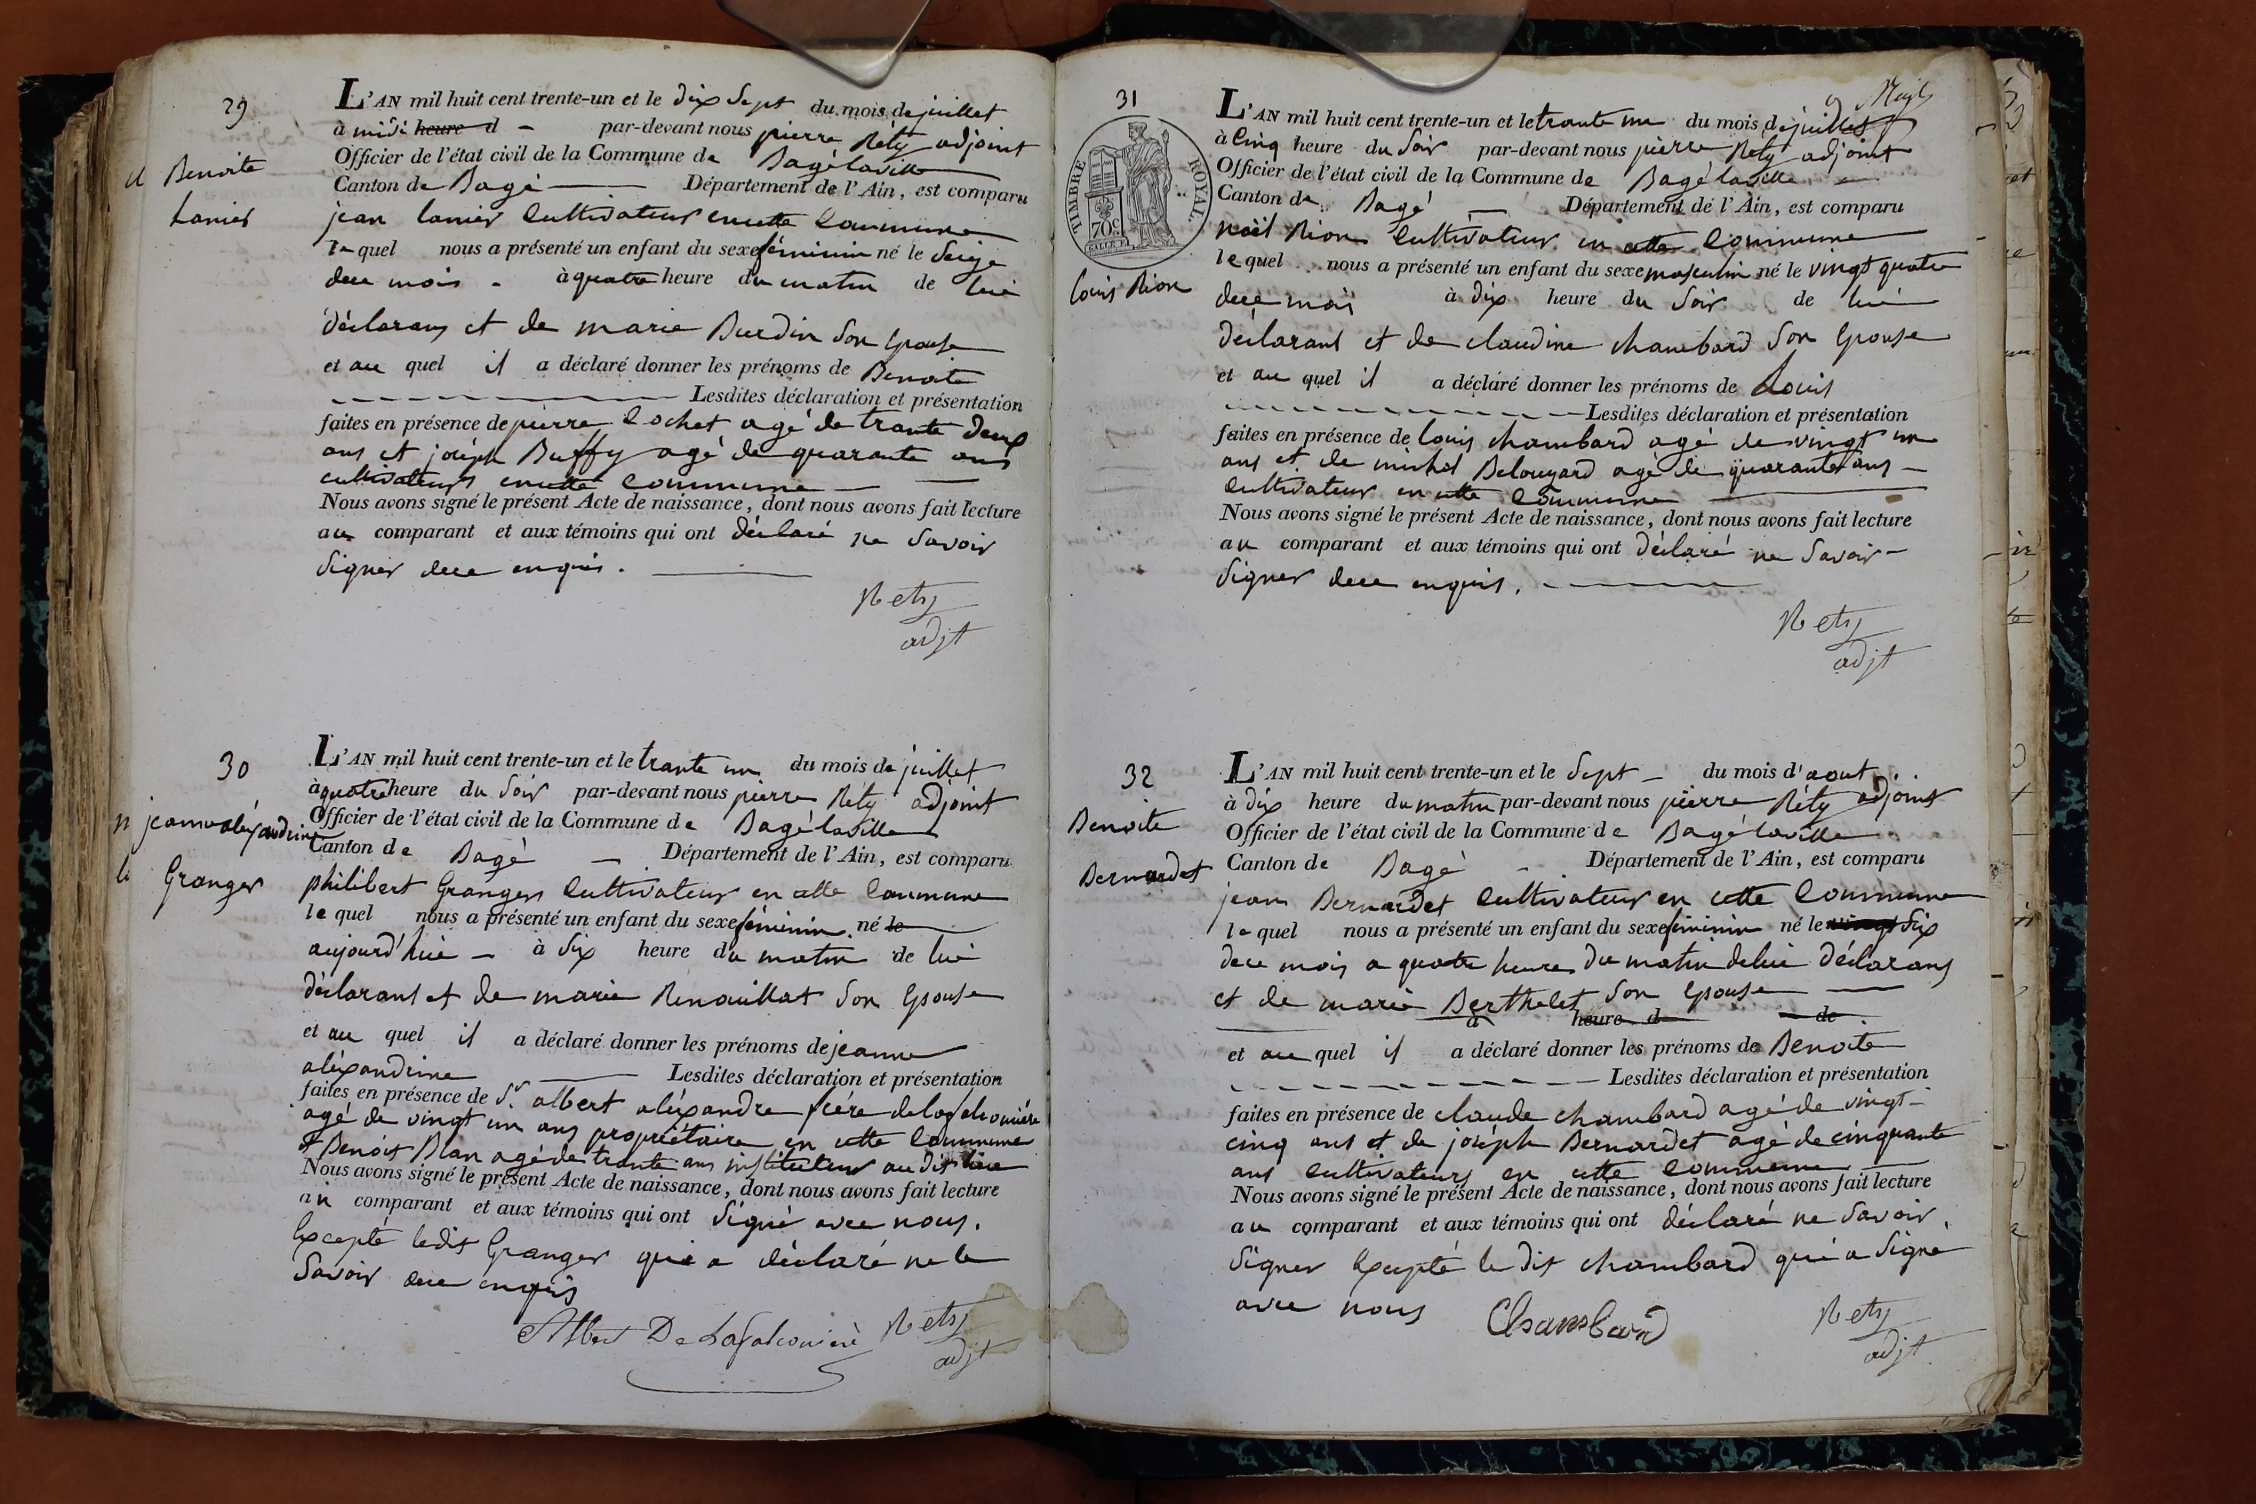 29
Benoite
Lanier
L'AN mil huit cent trente-un et le dix Sept du mois de juillet
à midi heure d par-devant nous pierre Réty adjoint
Officier de l'état civil de la Commune de Bagé laville
Canton de Bagé Département de l'Ain, est comparu
jean lanier Cultivateur en cette Commune
lequel nous a présenté un enfant du sexe féminin né le Seize
dece mois à quatre heure du matin de lui
déclarans et de marie Burdin Son Epouse
et au quel il a déclaré donner les prénoms de Benoite
Lesdites déclaration et présentation
faites en présence de pierre Cochet agé de trante deux
ans et joséph Buffy agé de quarante ans
cultivateurs en cette Commune
Nous avons signé le présent Acte de naissance, dont nous avons fait lecture
au comparant et aux témoins qui ont déclaré ne Savoir
Signer dece enquis.
Rety
adjt
30
jeanne aléxandrine
Granger
L'AN mil huit cent trente-un et le trante un du mois de juillet
à quatre heure du Soir par-devant nous pierre Réty adjoint
Officier de l'état civil de la Commune de Bagé laville
Canton de Bagé Département de l'Ain, est comparu
philibert Granger Cultivateur en cette Commune
lequel nous a présenté un enfant du sexe féminin né le
aujourd'hui à Six heure du matin de lui
déclarant et de marie Renouillat Son Epouse
et au quel il a déclaré donner les prénoms de jeanne
aléxandrine Lesdites déclaration et présentation
faites en présence de Sr. albert aléxandre
agé de vingt un ans propriétaire en cette Commune
et Benoit Blan agé de trante ans instituteur au dit lieu
Nous avons signé le présent Acte de naissance, dont nous avons fait lecture
au comparant et aux témoins qui ont Signé avec nous.
Excepté ledit Granger qui a déclaré ne le
Savoir dece enquis
Albert De Lafalconière Rety
adjt
31
TIMBRE ROYAL.
70c
louis Rion
L'AN mil huit cent trente-un et le trante un du mois de juillet
à Cinq heure du Soir par-devant nous pierre Réty adjoint
Officier de l'état civil de la Commune de Bagé laville
Canton de Bagé Département de l'Ain, est comparu
noël Rion Cultivateur en cette Commune
lequel nous a présenté un enfant du sexe masculin né le vingt quatre
dece mois à dix heure du Soir de lui
déclarant et de claudine chambard Son Epouse
et au quel il a déclaré donner les prénoms de Louis
Lesdites déclaration et présentation
faites en présence de louis chambard agé de vingt un
ans et de michel Belouzard agé de quarante ans
Cultivateur en cette Commune
Nous avons signé le présent Acte de naissance, dont nous avons fait lecture
au comparant et aux témoins qui ont déclaré ne Savoir
Signer dece enquis.
Rety
adjt
32
Benoite
Bernardet
L'AN mil huit cent trente-un et le Sept du mois d'aout
à dix heure du matin par-devant nous pierre Réty adjoint
Officier de l'état civil de la Commune de Bagé laville
Canton de Bagé Département de l'Ain, est comparu
jean Bernardet Cultivateur en cette Commune
lequel nous a présenté un enfant du sexe féminin né le vingt Six
dece mois a quatre heure du matin de lui déclarans
et de marie Berthelet Son Epouse
à heure d de
et au quel il a déclaré donner les prénoms de Benoite
Lesdites déclaration et présentation
faites en présence de claude chambard agé de vingt
cinq ans et de joséph Bernardet agé de cinquante
ans Cultivateurs en cette Commune
Nous avons signé le présent Acte de naissance, dont nous avons fait lecture
au comparant et aux témoins qui ont déclaré ne Savoir
Signer Excepté le dit chambard qui a Signé
avec nous
Chambard
Rety
adjt